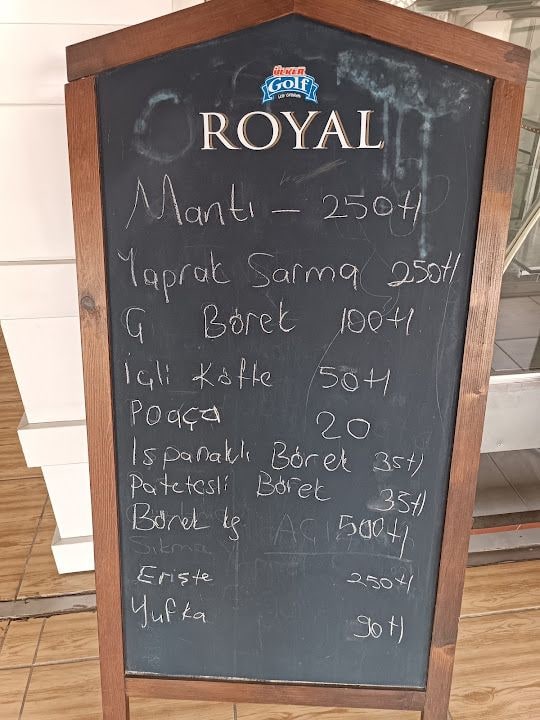 ÜLKER
Golf
ROYAL
Mantı - 250tl
Yaprak Sarma 250tl
G Börek 100tl
İçli Köfte 50tl
Poaça 20
Ispanaklı Börek 35tl
Patetesli Börek 35tl
Börek kg 500tl
Erişte 250tl
Yufka 90tl